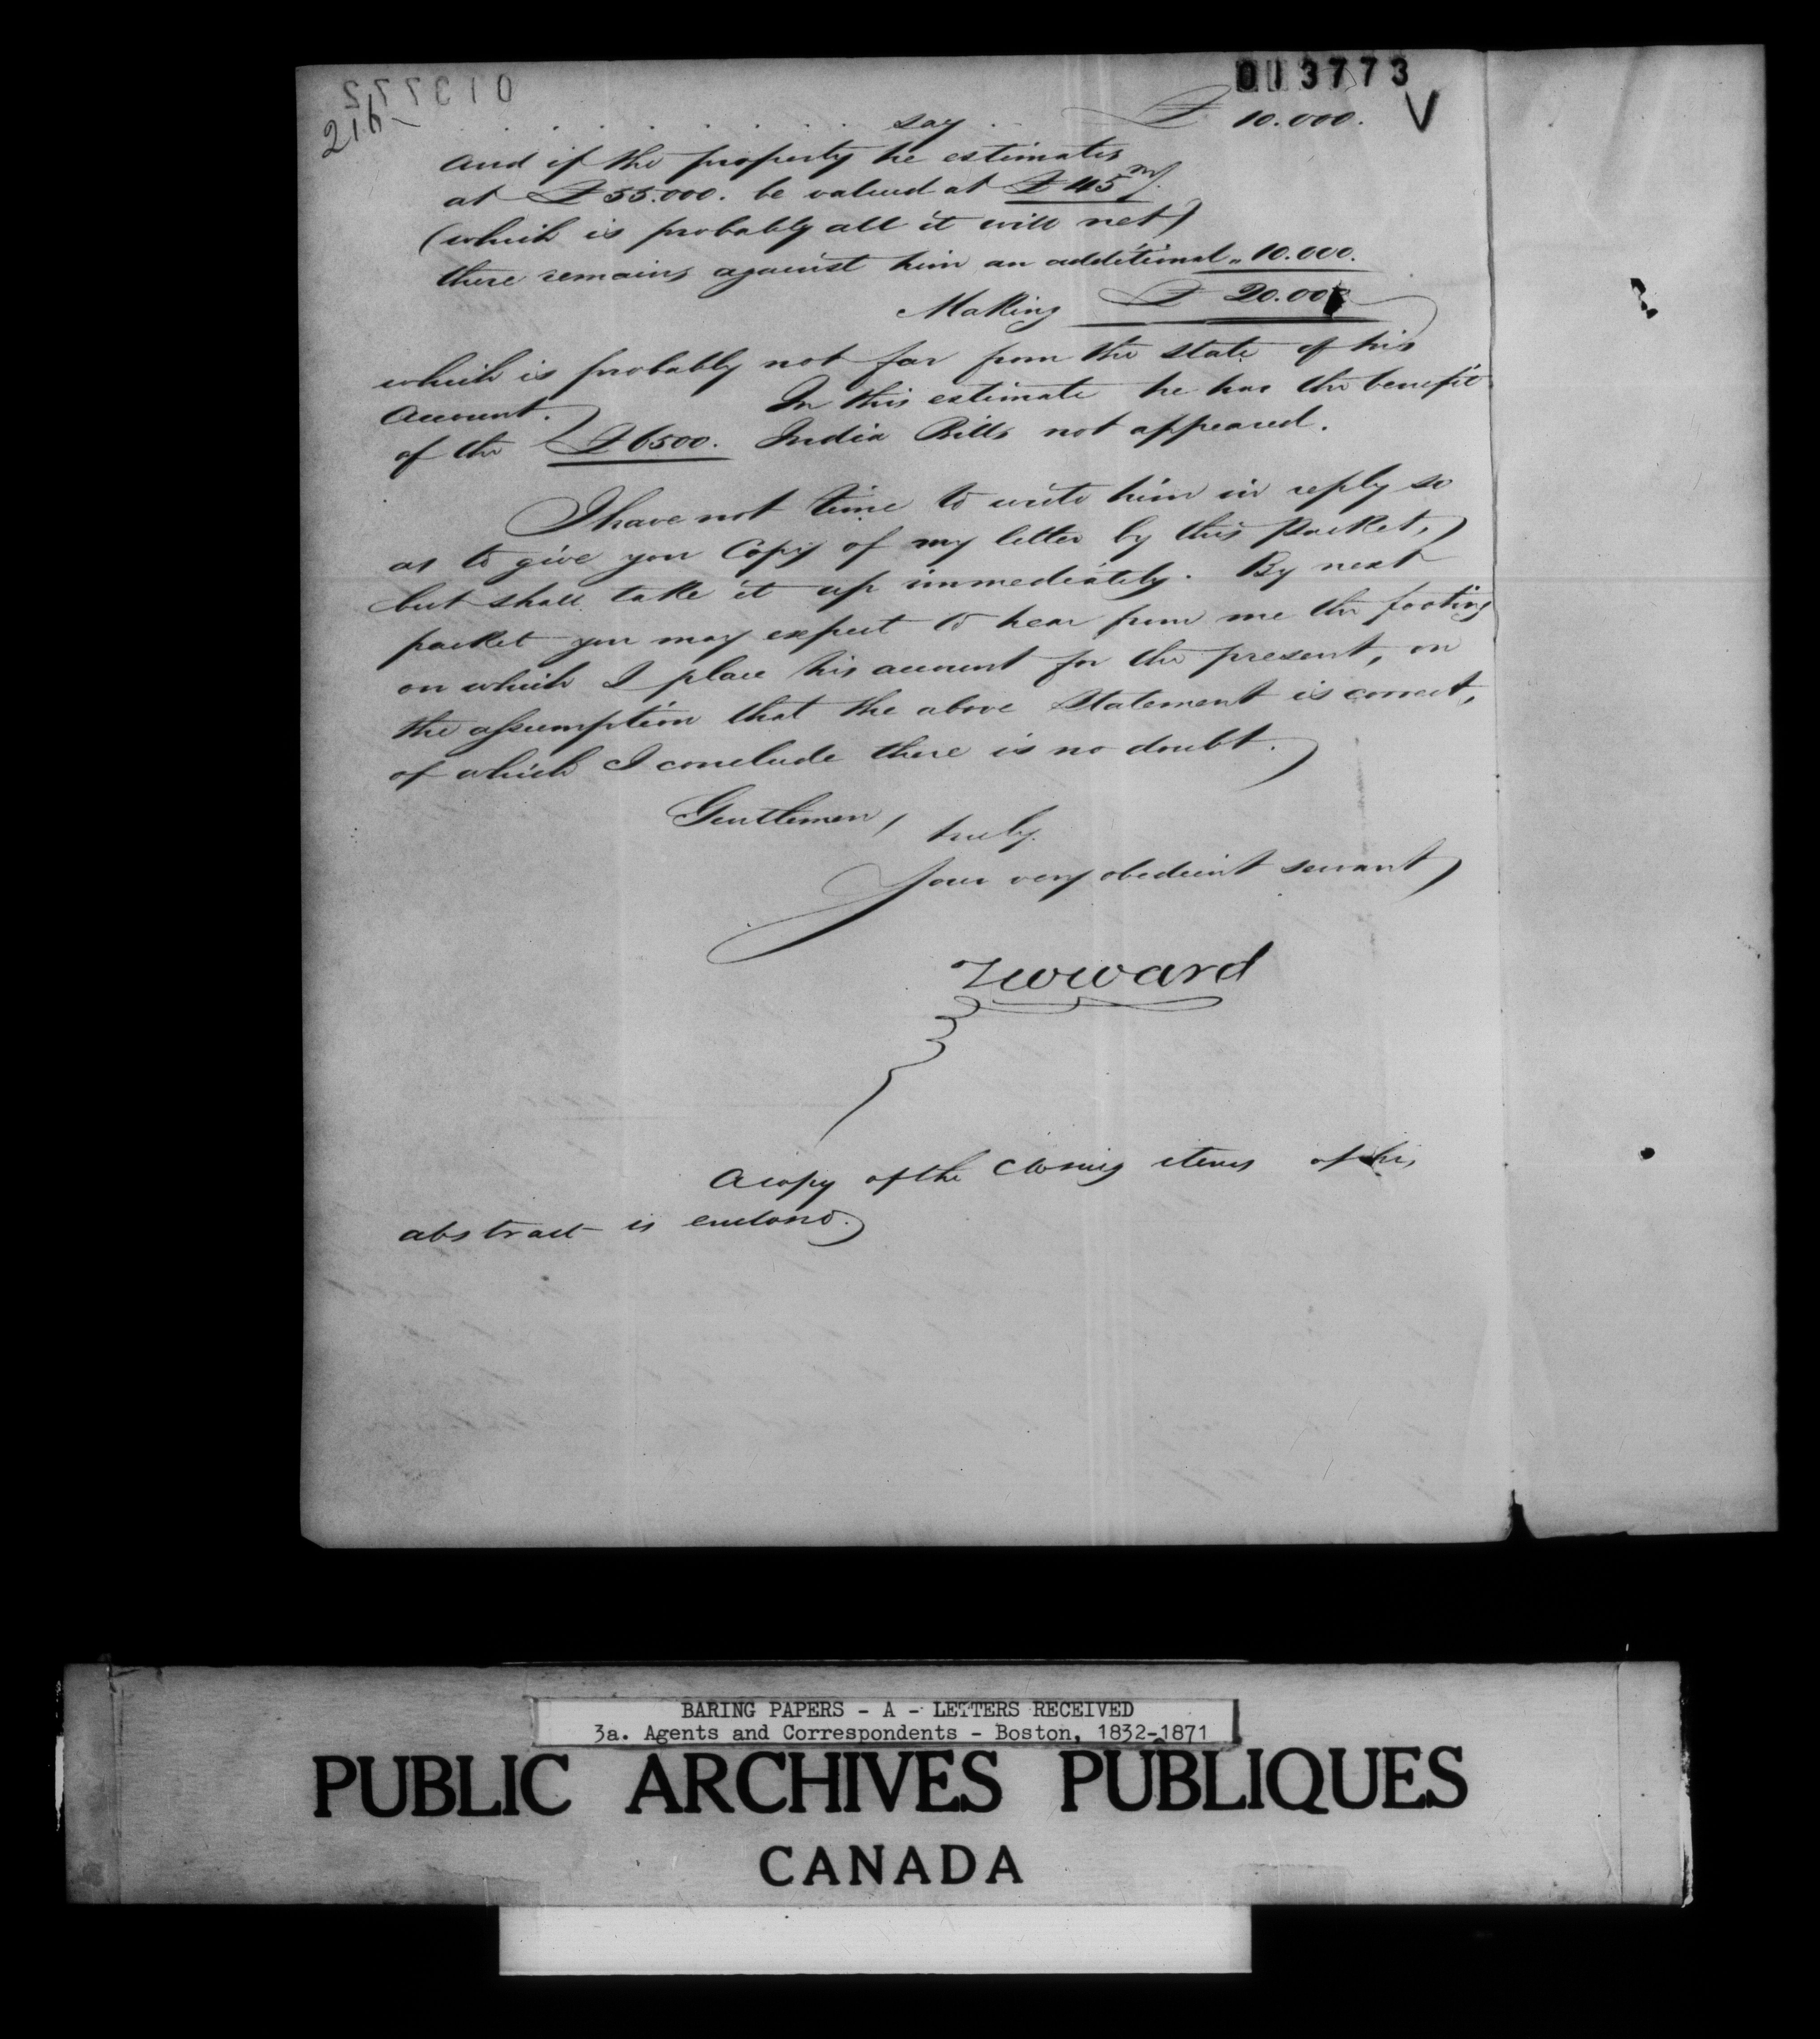 013773
216
say £ 10.000. V
and if the property he estimates
at £55.000. be valued at £45 m/.
(which is probably all it will net)
there remains against him an additional „ 10.000.
Making £ 20.000
which is probably not far from the state of his
account. In this estimate he has the benefit
of the £6500. India Bills not appeared.
I have not time to write him in reply so
as to give you Copy of my letter by this packet,
but shall take it up immediately. By next
packet you may expect to hear from me the footing
on which I place his account for the present, on
the assumption that the above Statement is correct,
of which I conclude there is no doubt.
Gentlemen, truly.
Your very obedient servant
TWWard
A copy of the closing items of his
abstract is enclosed.
BARING PAPERS - A - LETTERS RECEIVED
3a. Agents and Correspondents - Boston, 1832-1871
PUBLIC ARCHIVES PUBLIQUES
CANADA